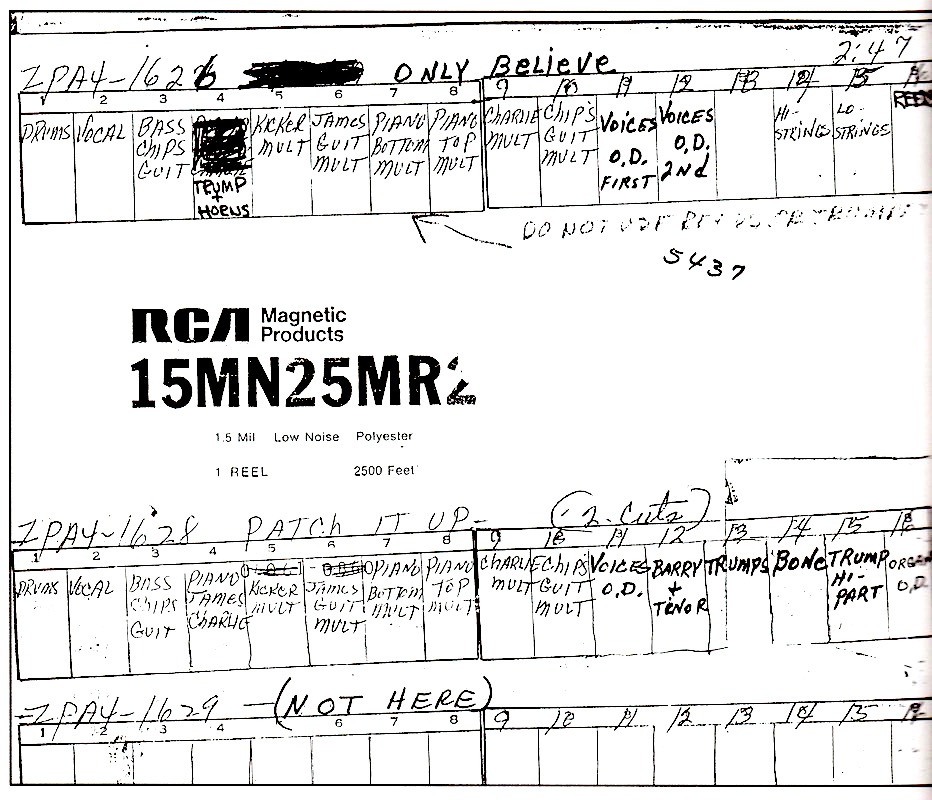 2:47
ZPA4-1626 ONLY Believe
1 2 3 4 5 6 7 8 9 10 11 12 13 14 15 16
DRUMS
VOCAL
BASS
CHIPS
GUIT
TRUMP
+
HORNS
KICKER
MULT
JAMES
GUIT
MULT
PIANO
BOTTOM
MULT
PIANO
TOP
MULT
CHARLIE
MULT
CHIPS
GUIT
MULT
VOICES
O.D.
FIRST
VOICES
O.D.
2Nd
HI-
STRINGS
LO-
STRINGS
REEDS
DO NOT USE
5437
RCA Magnetic
Products
15MN25MR2
1.5 Mil Low Noise Polyester
1 REEL 2500 Feet
ZPA4-1628 PATCH IT UP- (2 Cuts)
1 2 3 4 5 6 7 8 9 10 11 12 13 14 15 16
DRUMS
VOCAL
BASS
CHIPS
GUIT
PIANO
JAMES
CHARLIE
KICKER
MULT
JAMES
GUIT
MULT
PIANO
BOTTOM
MULT
PIANO
TOP
MULT
CHARLIE
MULT
CHIPS
GUIT
MULT
VOICES
O.D.
BARRY
+
TENOR
TRUMPS
BONE
TRUMP
HI-
PART
ORGAN
O.D.
-ZPA4-1629 - (NOT HERE)
1 2 3 4 5 6 7 8 9 10 11 12 13 14 15